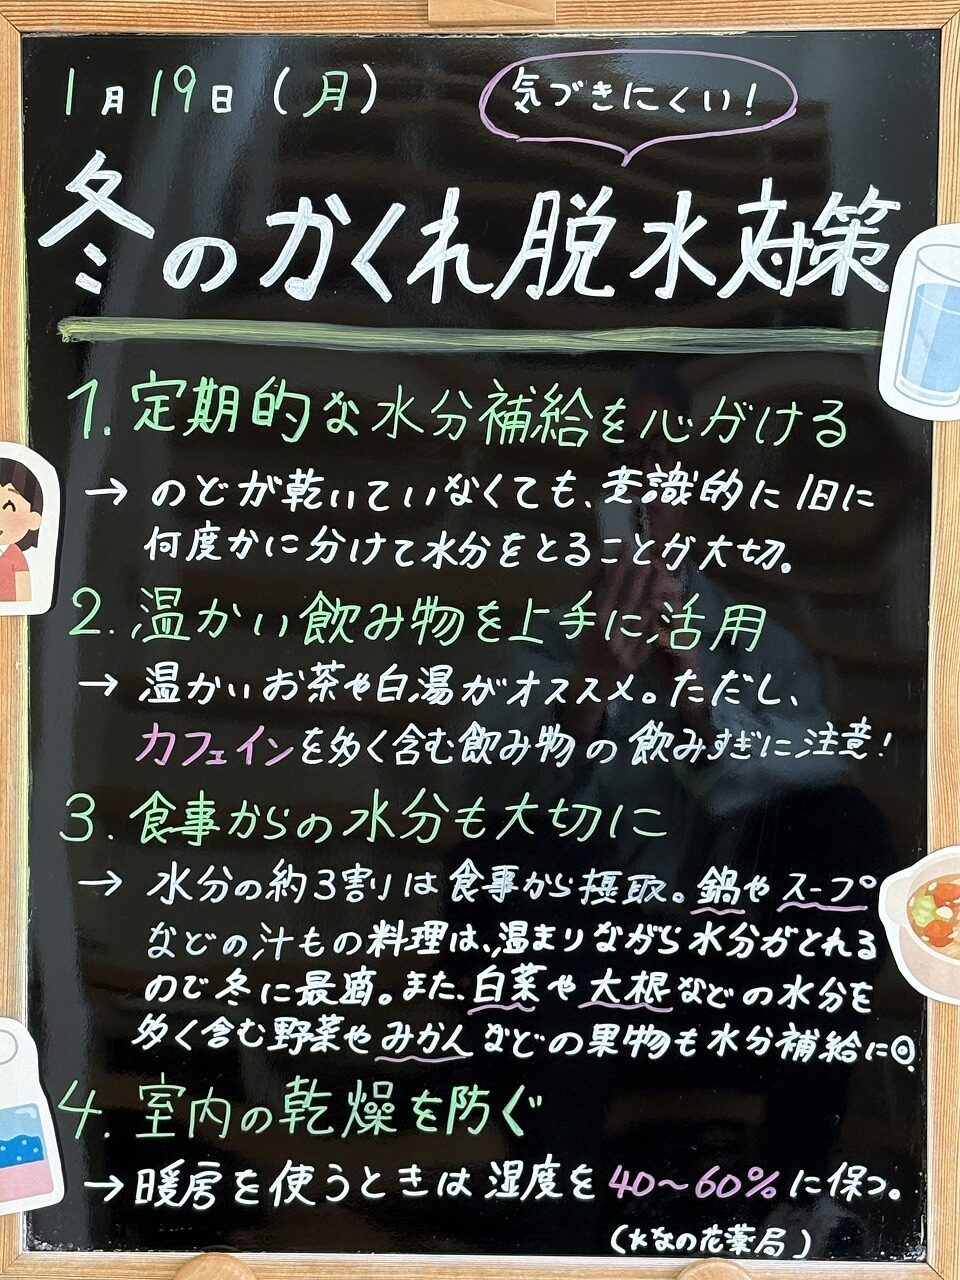 1月19日(月)
気づきにくい!
冬のかくれ脱水対策
1. 定期的な水分補給を心がける
→ のどが乾いていなくても、意識的に1日に
何度かに分けて水分をとることが大切。
2. 温かい飲み物を上手に活用
→ 温かいお茶や白湯がオススメ。ただし、
カフェインを多く含む飲み物の飲みすぎに注意!
3. 食事からの水分も大切に
→ 水分の約3割は食事から摂取。鍋やスープ
などの汁もの料理は、温まりながら水分がとれる
ので冬に最適。また、白菜や大根などの水分を
多く含む野菜やみかんなどの果物も水分補給に◎。
4. 室内の乾燥を防ぐ
→ 暖房を使うときは湿度を40〜60%に保つ。
(なの花薬局)